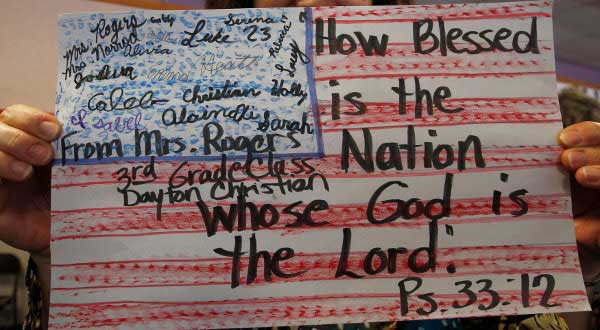 Mrs. Rogers
Mrs. Norred
Olivia
Luke 23
Serena
Lucy
Joshua
Heath
Caleb
Christian
Holly
Isabel
Sarah
From Mrs. Roger's
3rd Grade Class
Dayton Christian
How Blessed
is the
Nation
whose God is
the Lord."
Ps. 33:12